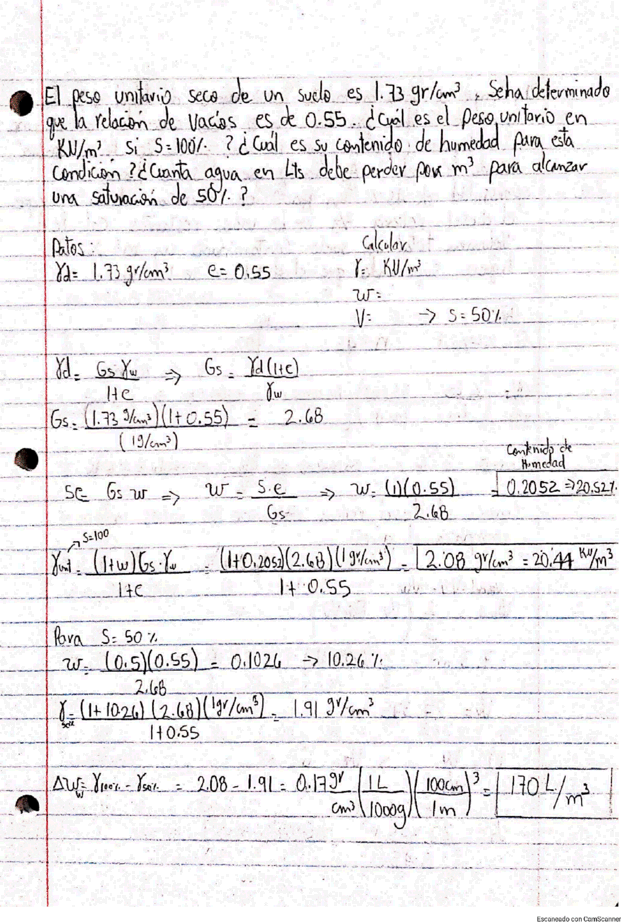 El peso unitario seco de un suelo es 1.73 gr/cm³, Seha determinado
que la relación de vacíos es de 0.55. ¿cuál es el peso unitario en
KN/m³ si S=100%. ? ¿Cuál es su contenido de humedad para esta
condición ? ¿Cuanta agua en Lts debe perder por m³ para alcanzar
una saturación de 50%. ?
Datos:
γd= 1.73 gr/cm³ e= 0.55
Calcular
γ= KN/m³
w=
V= → S=50%
γd= Gs γw / 1+e ⇒ Gs= γd(1+e) / γw
Gs= (1.73 g/cm³)(1+0.55) / (1g/cm³) = 2.68
Se= Gs w ⇒ w= S.e / Gs ⇒ w= (1)(0.55) / 2.68 = 0.2052 ⇒20.52%
Contenido de
Humedad
→ S=100
γunit= (1+w)Gs·γw / 1+e = (1+0.2052)(2.68)(1gr/cm³) / 1+0.55 = 2.08 gr/cm³ = 20.44 KN/m³
Para S= 50%
w= (0.5)(0.55) / 2.68 = 0.1026 → 10.26%
γ = (1+1026)(2.68)(1gr/cm³) / 1+0.55 = 1.91 gr/cm³
ΔW= γ100% - γ50% = 2.08 - 1.91 = 0.17 gr/cm³ (1L / 1000g) (100cm / 1m)³ = 170 L/m³
Escaneado con CamScanner